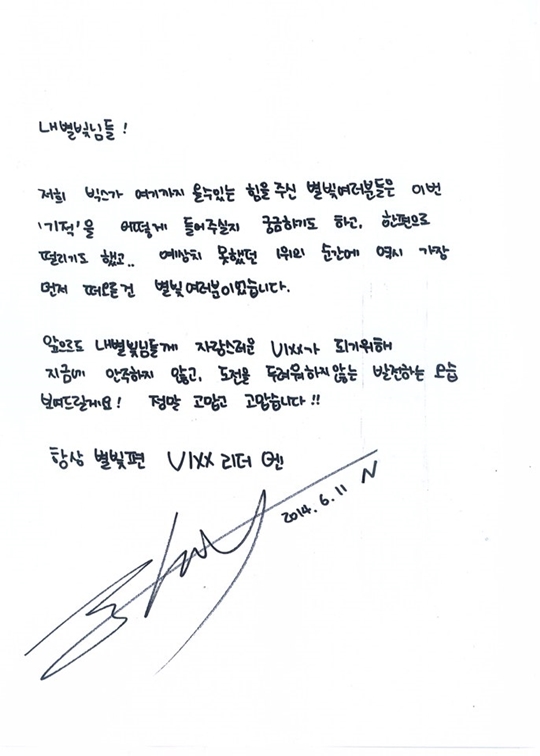 내별빛님들!
저희 빅스가 여기까지 올수있는 힘을 주신 별빛여러분들은 이번
'기적'을 어떻게 들어주실지 궁금하기도 하고, 한편으로
떨리기도 했고.. 예상치 못했던 1위의 순간에 역시 가장
먼저 떠오른건 별빛여러분이었습니다.
앞으로도 내별빛님들께 자랑스러운 VIXX가 되기위해
지금에 안주하지 않고, 도전을 두려워하지않는 발전하는 모습
보여드릴게요! 정말 고맙고 고맙습니다!!
항상 별빛편 VIXX 리더 엔
2014. 6. 11 N